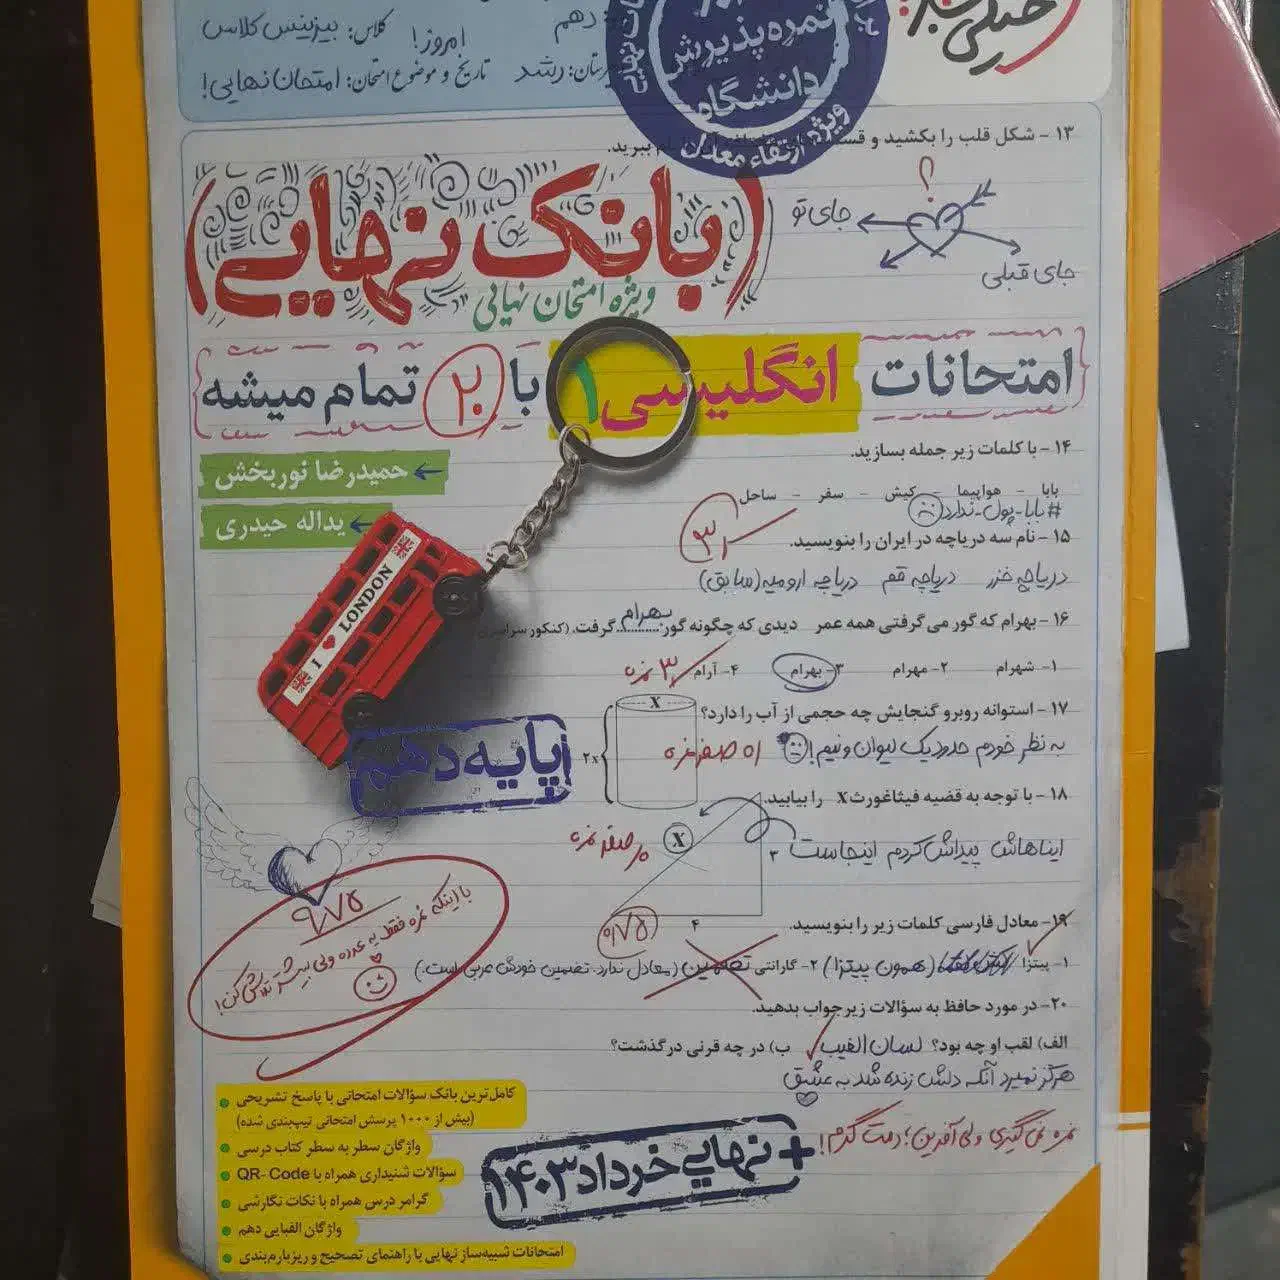 خیلی سبز
دهم
کلاس: بیزینس کلاس
امروز!
رشد
تاریخ و موضوع امتحان: امتحان نهایی!
نمره‌پذیرش
دانشگاه
ویژه ارتقاء معدل
۱۳- شکل قلب را بکشید و
ببرید.
؟
جای تو
جای قبلی
(بانک نهایی)
ویژه امتحان نهائی
امتحانات انگلیسی ۱ با ۲۰ تمام میشه
حمیدرضا نوربخش
یداله حیدری
۱۴- با کلمات زیر جمله بسازید.
بابا - هواپیما - کیش - سفر - ساحل
#بابا-پول-ندارد
۱۵- نام سه دریاچه در ایران را بنویسید.
دریاچه خزر دریاچه قم دریاچه ارومیه (سابق)
I LONDON
۱۶- بهرام که گور می‌گرفتی همه عمر دیدی که چگونه گور بهرام گرفت. (کنکور سراسری
۱- شهرام ۲- مهرام ۳- بهرام ۴- آرام ۳ نمره
۱۷- استوانه روبرو گنجایش چه حجمی از آب را دارد؟
X
۲x
به نظر خودم حدود یک لیوان و نیم!
اه صفر نمره
پایه دهم
۱۸- با توجه به قضیه فیثاغورث X را بیابید.
ایناهاش پیداش کردم اینجاست
X
۳
۴
صفر نمره
۰/۷۵
۱۹- معادل فارسی کلمات زیر را بنویسید.
۱- پیتزا (همون پیتزا) ۲- گارانتی تضمین (معادل ندارد. تضمین خودش عربی است.)
۹/۷۵
با اینکه نمره فقط یه عدده ولی بیشتر تلاش کن!
۲۰- در مورد حافظ به سؤالات زیر جواب بدهید.
الف) لقب او چه بود؟ لسان الغیب ب) در چه قرنی درگذشت؟
هرگز نمیرد آنکه دلش زنده شد به عشق
نمره نمی‌گیری ولی آفرین؛ دمت گرم!
+ نهایی خرداد ۱۴۰۳
کامل‌ترین بانک سؤالات امتحانی با پاسخ تشریحی
(بیش از ۱۰۰۰ پرسش امتحانی تیپ‌بندی شده)
واژگان سطر به سطر کتاب درسی
سؤالات شنیداری همراه با QR-Code
گرامر درس همراه با نکات نگارشی
واژگان الفبایی دهم
امتحانات شبیه‌ساز نهایی با راهنمای تصحیح و ریزبارم‌بندی